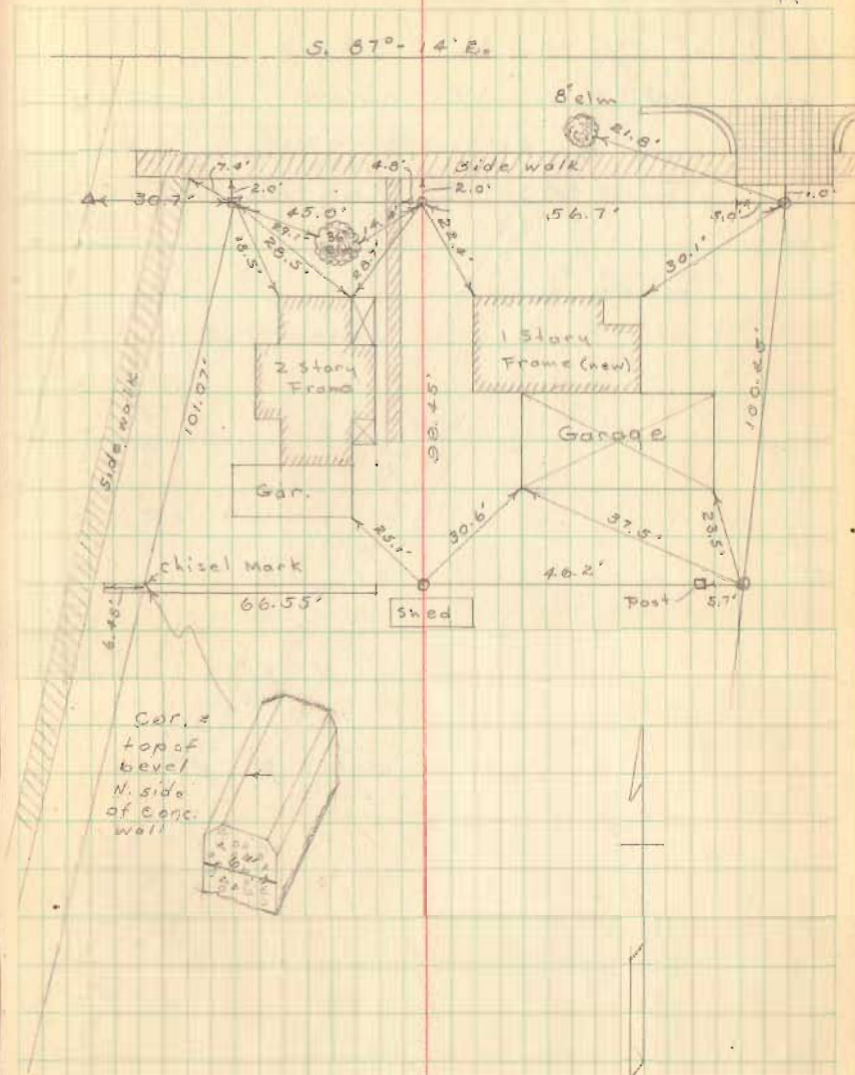 S. 87°- 14' E.
8" elm
21.8'
7.4'
4.8'
Side walk
2.0'
2.0'
1.0'
30.7'
45.0'
56.7'
3.0'
29.1'
14.4'
18.5'
28.5'
28.7'
22.4'
30.1'
2 Story
Frame
1 Story
Frame (new)
Side walk
101.07'
98.45'
100.25'
Garage
Gar.
25.1'
30.6'
37.5'
23.5'
chisel Mark
46.2'
66.55'
Shed
Post
5.7'
6.45'
Cor. =
top of
bevel
N. side
of conc.
wall
6"